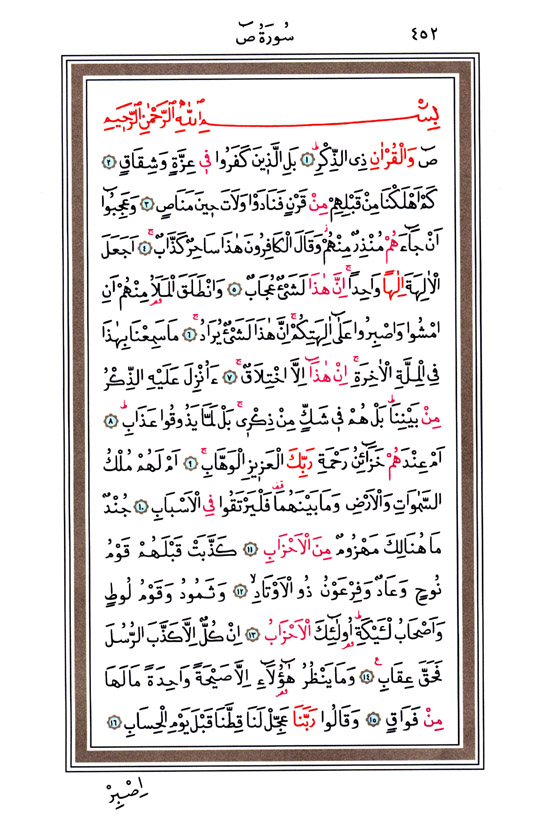 ٤٥٢
سُورَةُ صٓ
بِسْمِ اللّٰهِ الرَّحْمٰنِ الرَّحٖيمِ
صٓ وَالْقُرْاٰنِ ذِى الذِّكْرِؕ ﴿١﴾ بَلِ الَّذٖينَ كَفَرُوا فٖى عِزَّةٍ وَشِقَاقٍ ﴿٢﴾
كَمْ اَهْلَكْنَا مِنْ قَبْلِهِمْ مِنْ قَرْنٍ فَنَادَوْا وَلَاتَ حٖينَ مَنَاصٍ ﴿٣﴾ وَعَجِبُٓوا
اَنْ جَٓاءَهُمْ مُنْذِرٌ مِنْهُمْؗ وَقَالَ الْكَافِرُونَ هٰذَا سَاحِرٌ كَذَّابٌۚ ﴿٤﴾ اَجَعَلَ
الْاٰلِهَةَ اِلٰهًا وَاحِدًاۚ اِنَّ هٰذَا لَشَیْءٌ عُجَابٌ ﴿٥﴾ وَانْطَلَقَ الْمَلَاُ مِنْهُمْ اَنِ
امْشُوا وَاصْبِرُوا عَلٰٓى اٰلِهَتِكُمْۚ اِنَّ هٰذَا لَشَیْءٌ يُرَادُۚ ﴿٦﴾ مَا سَمِعْنَا بِهٰذَا
فِى الْمِلَّةِ الْاٰخِرَةِۚ اِنْ هٰذَٓا اِلَّا اخْتِلَاقٌۚ ﴿٧﴾ ءَاُنْزِلَ عَلَيْهِ الذِّكْرُ
مِنْ بَيْنِنَاؕ بَلْ هُمْ فٖى شَكٍّ مِنْ ذِكْرٖىۚ بَلْ لَمَّا يَذُوقُوا عَذَابِؕ ﴿٨﴾
اَمْ عِنْدَهُمْ خَزَٓائِنُ رَحْمَةِ رَبِّكَ الْعَزٖيزِ الْوَهَّابِۚ ﴿٩﴾ اَمْ لَهُمْ مُلْكُ
السَّمٰوَاتِ وَالْاَرْضِ وَمَا بَيْنَهُمَا فَلْيَرْتَقُوا فِى الْاَسْبَابِ ﴿١٠﴾ جُنْدٌ
مَا هُنَالِكَ مَهْزُومٌ مِنَ الْاَحْزَابِ ﴿١١﴾ كَذَّبَتْ قَبْلَهُمْ قَوْمُ
نُوحٍ وَعَادٌ وَفِرْعَوْنُ ذُو الْاَوْتَادِۙ ﴿١٢﴾ وَثَمُودُ وَقَوْمُ لُوطٍ
وَاَصْحَابُ لْـَٔيْكَةِؕ اُو۬لٰٓئِكَ الْاَحْزَابُ ﴿١٣﴾ اِنْ كُلٌّ اِلَّا كَذَّبَ الرُّسُلَ
فَحَقَّ عِقَابِ۟ ﴿١٤﴾ وَمَا يَنْظُرُ هٰٓؤُ۬لَٓاءِ اِلَّا صَيْحَةً وَاحِدَةً مَا لَهَا
مِنْ فَوَاقٍ ﴿١٥﴾ وَقَالُوا رَبَّنَا عَجِّلْ لَنَا قِطَّنَا قَبْلَ يَوْمِ الْحِسَابِ ﴿١٦﴾
اِصْبِرْ